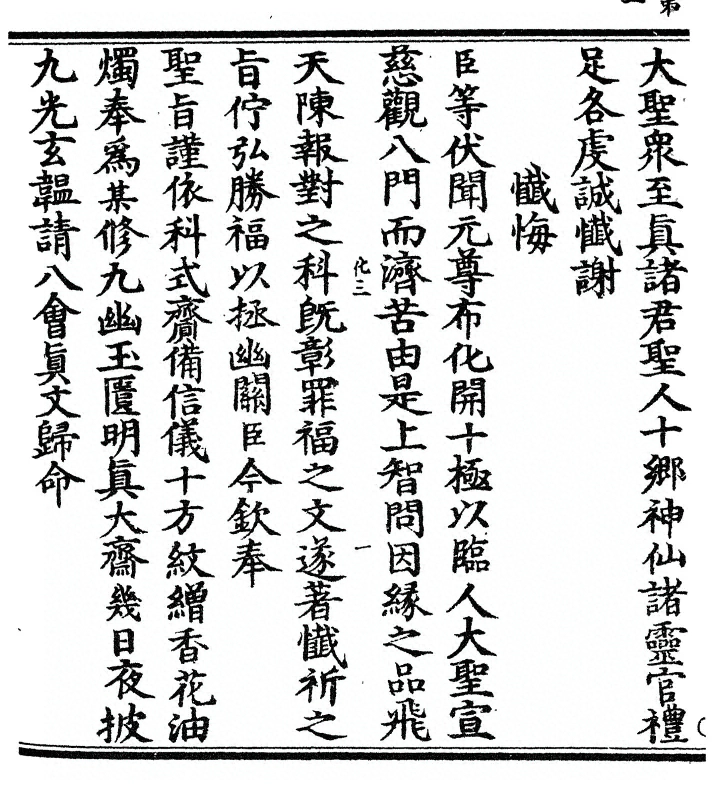 大聖衆至眞諸君聖人十郷神仙諸靈官禮
足各虔誠懺謝
懺悔
臣等伏聞元尊布化開十極以臨人大聖宣
慈觀八門而濟苦由是上智問因緣之品飛
化三
一
天陳報對之科旣彰罪福之文遂著懺祈之
旨佇弘勝福以拯幽關臣今欽奉
聖旨謹依科式齎備信儀十方紋繒香花油
燭奉爲某修九幽玉匱明眞大齋幾日夜披
九光玄韞請八會眞文歸命